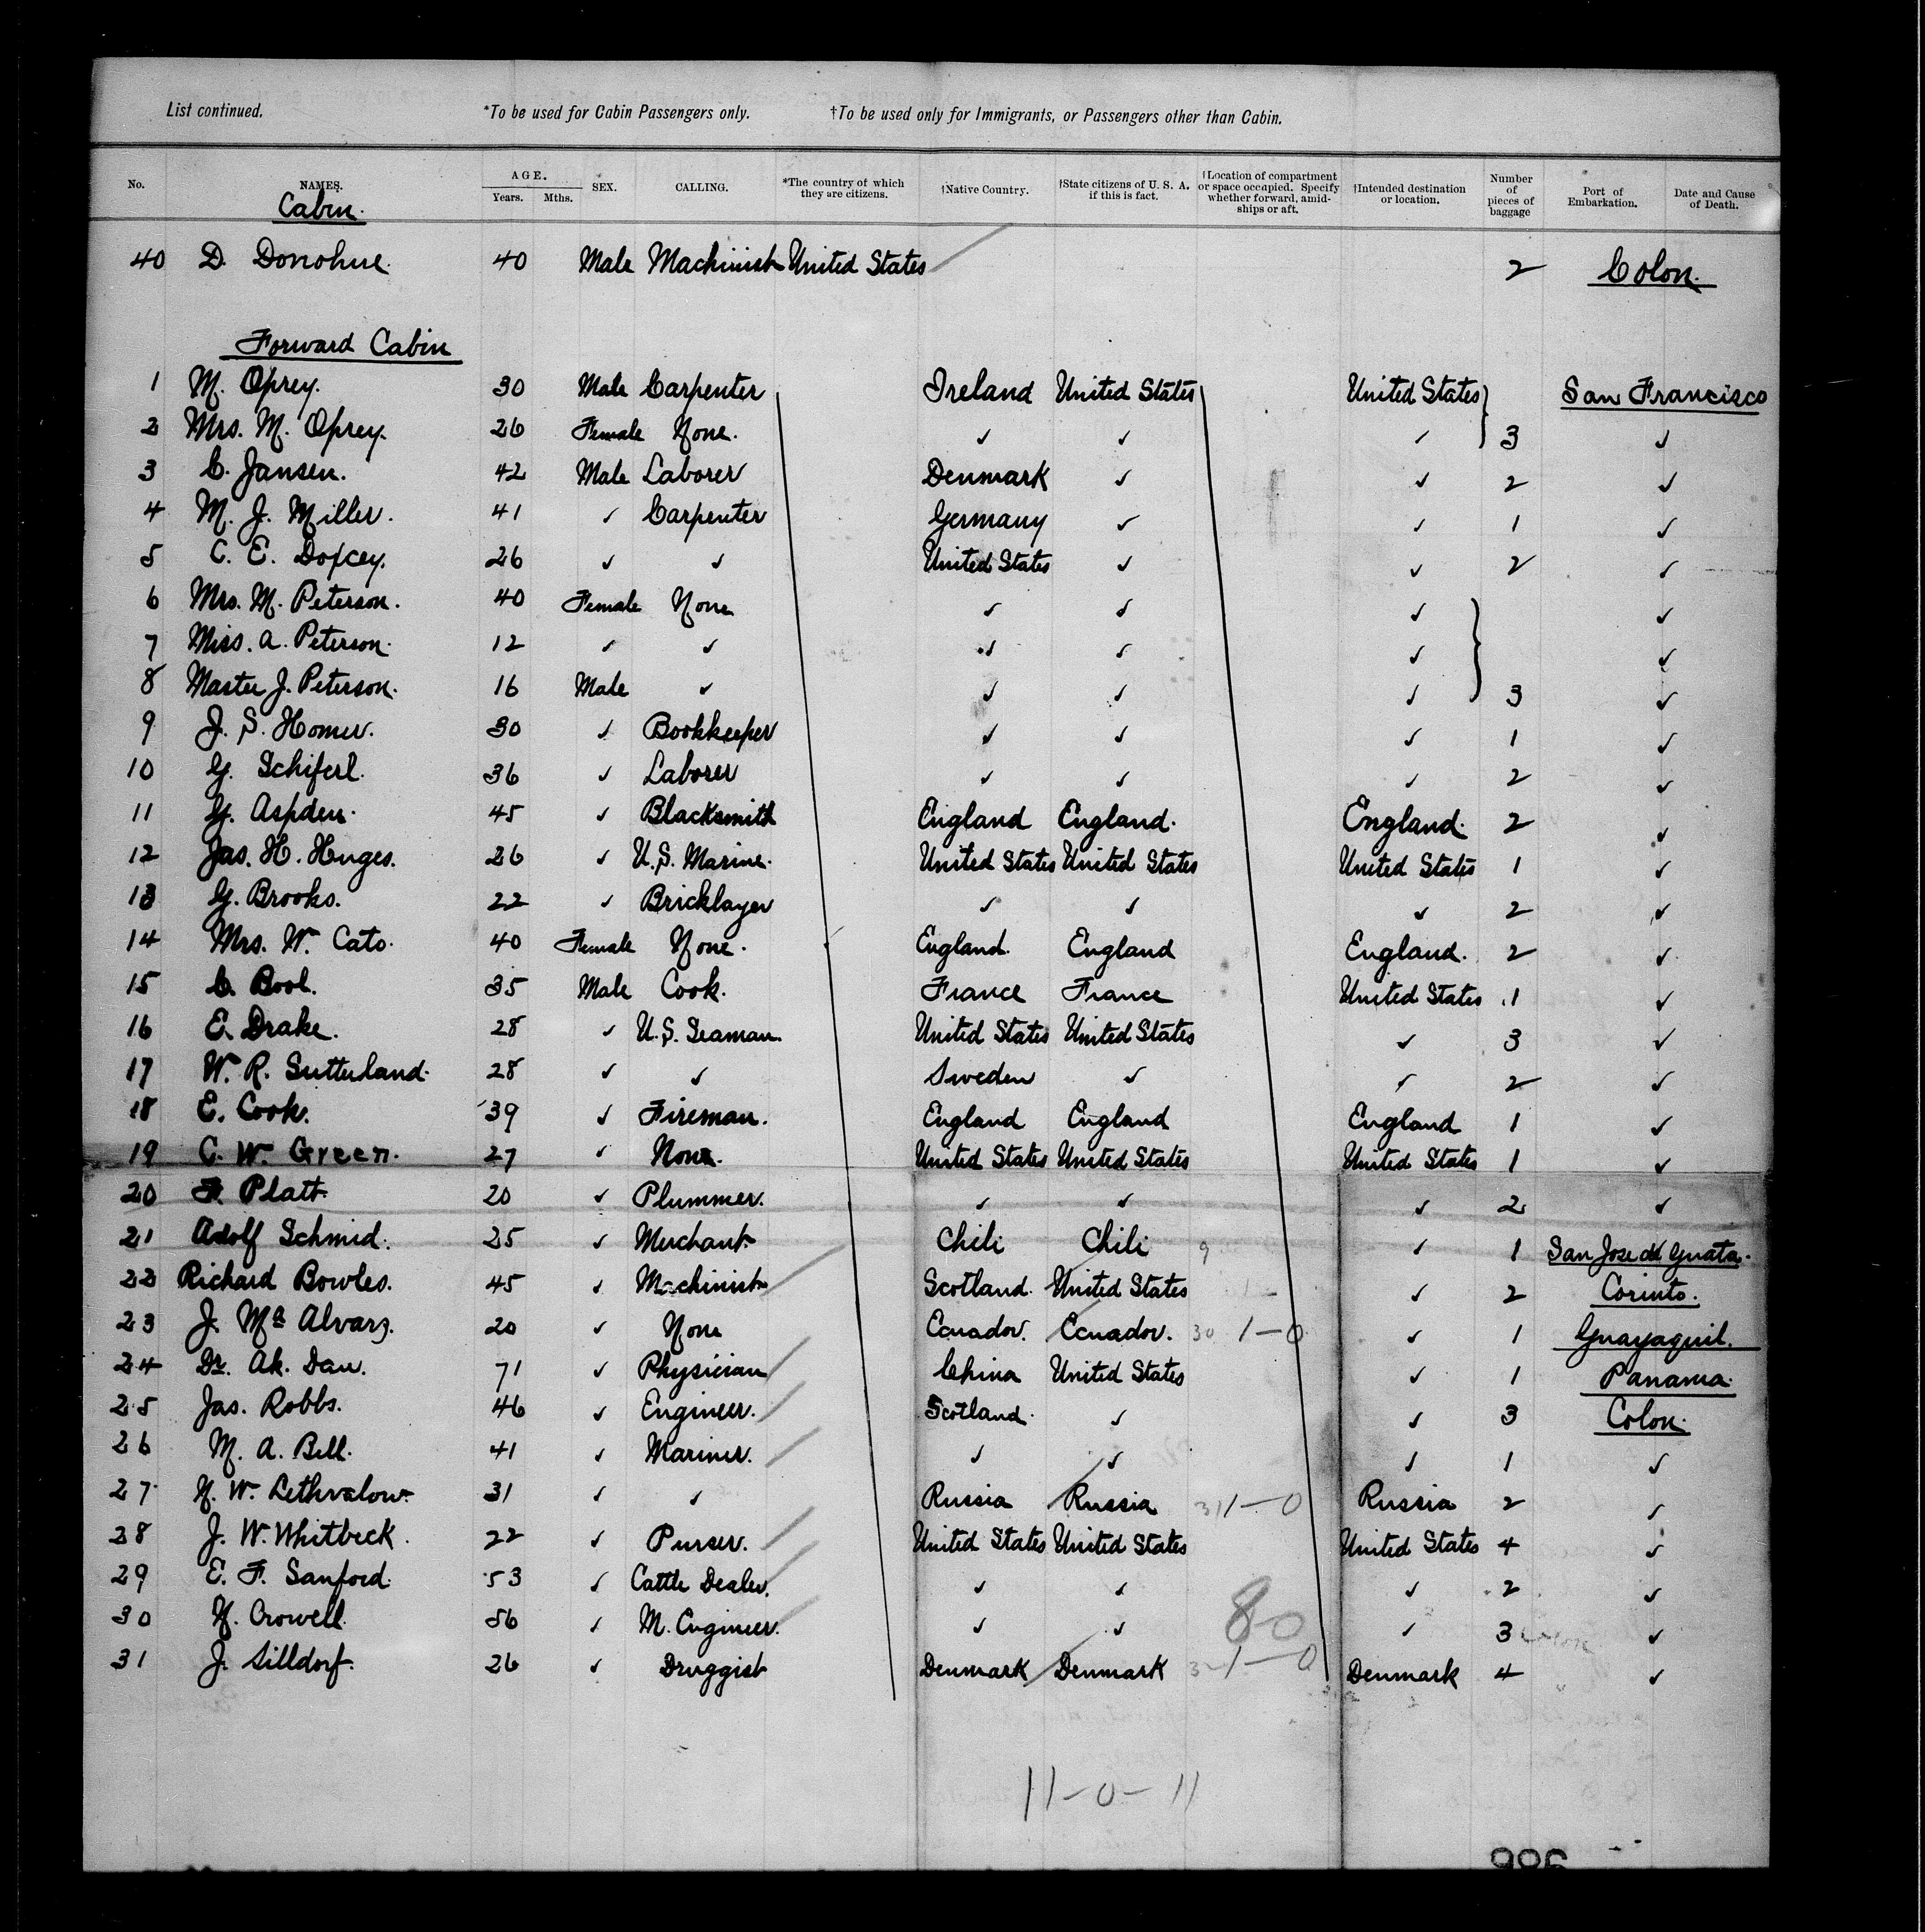 List continued. *To be used for Cabin Passengers only. †To be used only for Immigrants, or Passengers other than Cabin.
No. NAMES. AGE. Years. Mths. SEX. CALLING. *The country of which they are citizens. †Native Country. †State citizens of U. S. A. if this is fact. †Location of compartment or space occupied. Specify whether forward, amid-ships or aft. †Intended destination or location. Number of pieces of baggage Port of Embarkation. Date and Cause of Death.
Cabin.
40 D. Donohue. 40 Male Machinist United States 2 Colon.
Forward Cabin
1 M. Oprey. 30 Male Carpenter Ireland United States United States San Francisco
2 Mrs. M. Oprey. 26 Female None. ✓ ✓ ✓ 3 ✓
3 C. Jansen. 42 Male Laborer Denmark ✓ ✓ 2 ✓
4 M. J. Miller. 41 ✓ Carpenter Germany ✓ ✓ 1 ✓
5 C. E. 26 ✓ ✓ United States ✓ ✓ 2 ✓
6 Mrs. M. Peterson. 40 Female None ✓ ✓ ✓ ✓
7 Miss. A. Peterson. 12 ✓ ✓ ✓ ✓ ✓ ✓
8 Master J. Peterson. 16 Male ✓ ✓ ✓ ✓ 3 ✓
9 J. S. Homer. 30 ✓ Bookkeeper ✓ ✓ ✓ 1 ✓
10 G. Schiferl. 36 ✓ Laborer ✓ ✓ ✓ 2 ✓
11 G. Aspden. 45 ✓ Blacksmith England England. England. 2 ✓
12 Jas. H. Huges. 26 ✓ U.S. Marine. United States United States United States 1 ✓
13 G. Brooks. 22 ✓ Bricklayer ✓ ✓ ✓ 2 ✓
14 Mrs. W. Cato. 40 Female None. England. England England. 2 ✓
15 C. Bool. 35 Male Cook. France France United States 1 ✓
16 E. Drake. 28 ✓ U.S. Seaman. United States United States ✓ 3 ✓
17 W. R. Sutterland. 28 ✓ ✓ Sweden ✓ ✓ 2 ✓
18 E. Cook. 39 ✓ Fireman. England England England 1 ✓
19 C. W. Green. 27 ✓ None. United States United States United States 1 ✓
20 F. Platt. 20 ✓ Plummer. ✓ ✓ ✓ 2 ✓
21 Adolf Schmid. 25 ✓ Merchant. Chili Chili 9 ✓ 1 San Jose de Guata.
22 Richard Bowles. 45 ✓ Machinist Scotland. United States ✓ 2 Corinto.
23 J. Ma Alvarz. 20 ✓ None Ecuador. Ecuador. 30 1-0 ✓ 1 Guayaquil.
24 Dr. Ah. Dan. 71 ✓ Physician China United States ✓ 1 Panama.
25 Jas. Robbs. 46 ✓ Engineer. Scotland. ✓ ✓ 3 Colon.
26 M. A. Bell. 41 ✓ Mariner. ✓ ✓ ✓ 1 ✓
27 N. W. Lethvalow. 31 ✓ ✓ Russia Russia 31 1-0 Russia 2 ✓
28 J. W. Whitbeck. 22 ✓ Purser. United States United States United States 4 ✓
29 E. F. Sanford. 53 ✓ Cattle Dealer. ✓ ✓ ✓ 2 ✓
30 N. Crowell. 56 ✓ M. Engineer. ✓ ✓ 80 ✓ 3 Colon ✓
31 J. Silldorf. 26 ✓ Druggist Denmark Denmark 32 1-0 Denmark 4 ✓
11-0-11
986